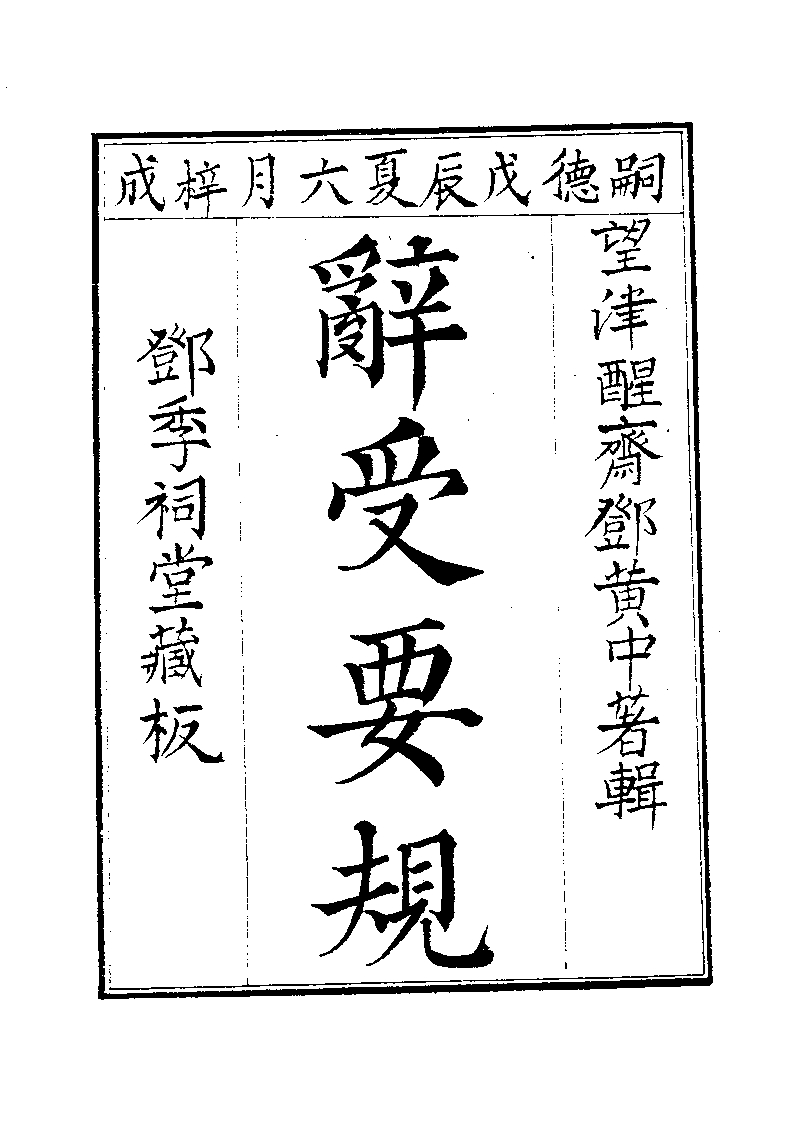 嗣德戊辰夏六月梓成
望津醒齋鄧黄中著輯
辭受要規
鄧季祠堂藏板